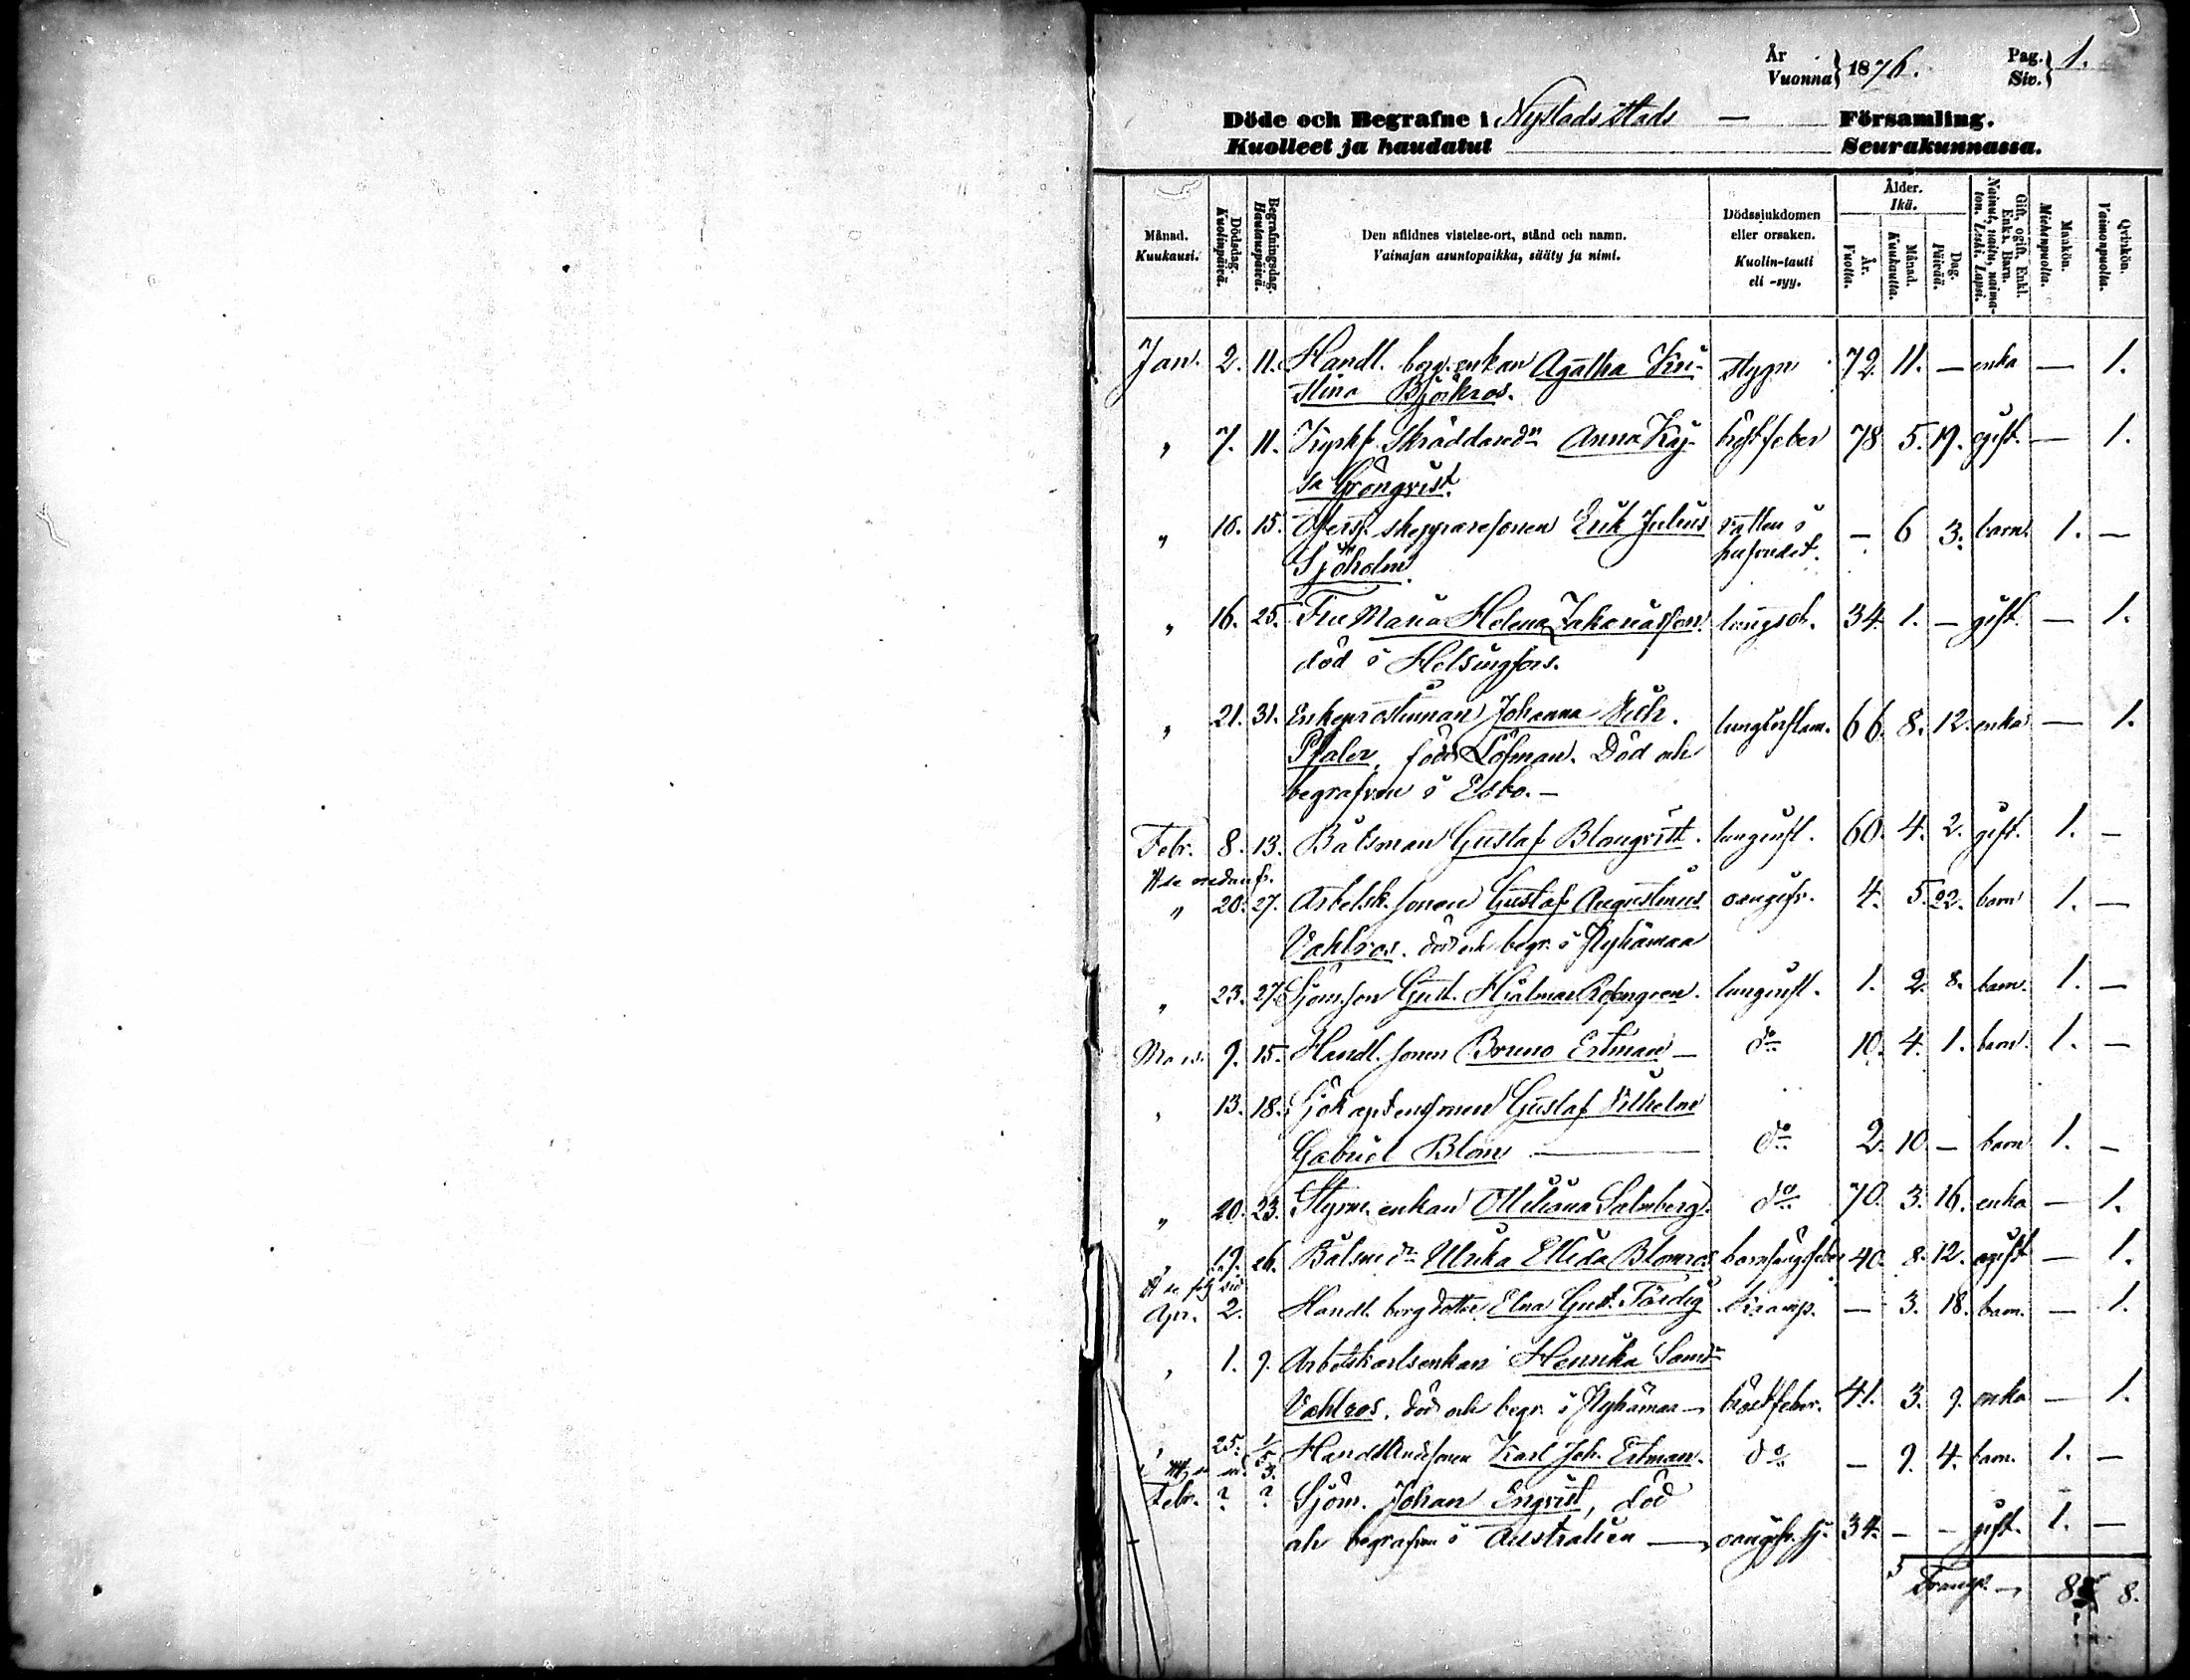 År
Vuonna } 1876.
Pag.
Siv. } 1.
Döde och Begrafne i Nystads stads — Församling.
Kuolleet ja haudatut Seurakunnassa.
Månad. Kuukausi.
Dödsdag. Kuolinpäivä.
Begrafningsdag. Hautauspäivä.
Den aflidnes vistelse-ort, stånd och namn.
Vainajan asuntopaikka, sääty ja nimi.
Dödssjukdomen eller orsaken.
Kuolin-tauti eli -syy.
Ålder. Ikä.
År. Vuotta.
Månad. Kuukautta.
Dag. Päivää.
Gift, ogift, Enkl. Enka. Barn.
Nainut, naitu, naimaton. Leski. Lapsi.
Mankön. Miehenpuolia.
Qvinkön. Vaimonpuolia.
Jan. 2. 11. Handl. borg. enkan Agatha Kri- stygn 72. 11. — enka — 1.
stina Björkros.
„ 7. 11. Skräddaredr Anna Kaj- bröstfeber 78 5. 19. ogift. — 1.
sa Grönqvist.
„ 10. 15. skepparesonen Erik Julius vatten i — 6 3. barn. 1. —
Sjöholm. hufvudet.
„ 16. 25. Fru Maria Helena Zakariasson lungsot. 34. 1. — gift. — 1.
död i Helsingfors.
„ 21. 31. Enkeprostinnan Johanna Vilh. lunginflam. 66. 8. 12. enka — 1.
Pfaler, född Löfman. Död och
begrafven i Esbo. —
Febr. 8. 13. Båtsman Gustaf Blomqvist. lunginfl. 60. 4. 2. gift. 1. —
se nedanf.
„ 20. 27. Arbetsk. sonen Gustaf Augustinus oangifv. 4. 5. 22. barn 1. —
Vahlros. död och begr. i Pyhämaa
„ 23. 27. Sjöm. son Gust. Hjalmar Rosengren. lunginfl. 1. 2. 8. barn. 1. —
Mars. 9. 15. Handl. sonen Bruno Ertman — do 10. 4. 1. barn. 1. —
„ 13. 18. Sjökaptenssonen Gustaf Vilhelm
Gabriel Blom — do 2. 10. — barn 1. —
„ 20. 23. Styrm. enkan Ottiliana Salmberg. do 70. 3. 16. enka — 1.
„ 19. 26. Båtsm. dr Ulrika Elida Blomros barnsängsfeber 40. 8. 12. ogift — 1.
se följ sid
Apr. 2. Handl. borg dotter Elna Gust. Färdig kramp. — 3. 18. barn. — 1.
„ 1. 9. Arbetskarlsenkan Henrika Samdr
Vahlros, död och begr. i Pyhämaa — bröstfeber. 41. 3. 9. enka — 1.
„ 25. 1/5 Karl Joh. Ertman. do — 9. 4. barn. 1. —
Febr. ? ? Sjöm. Johan Enqvist, död
och begrafven i Australien — oangifv. sj. 34. — — gift. 1. —
Transp. — 8 8.